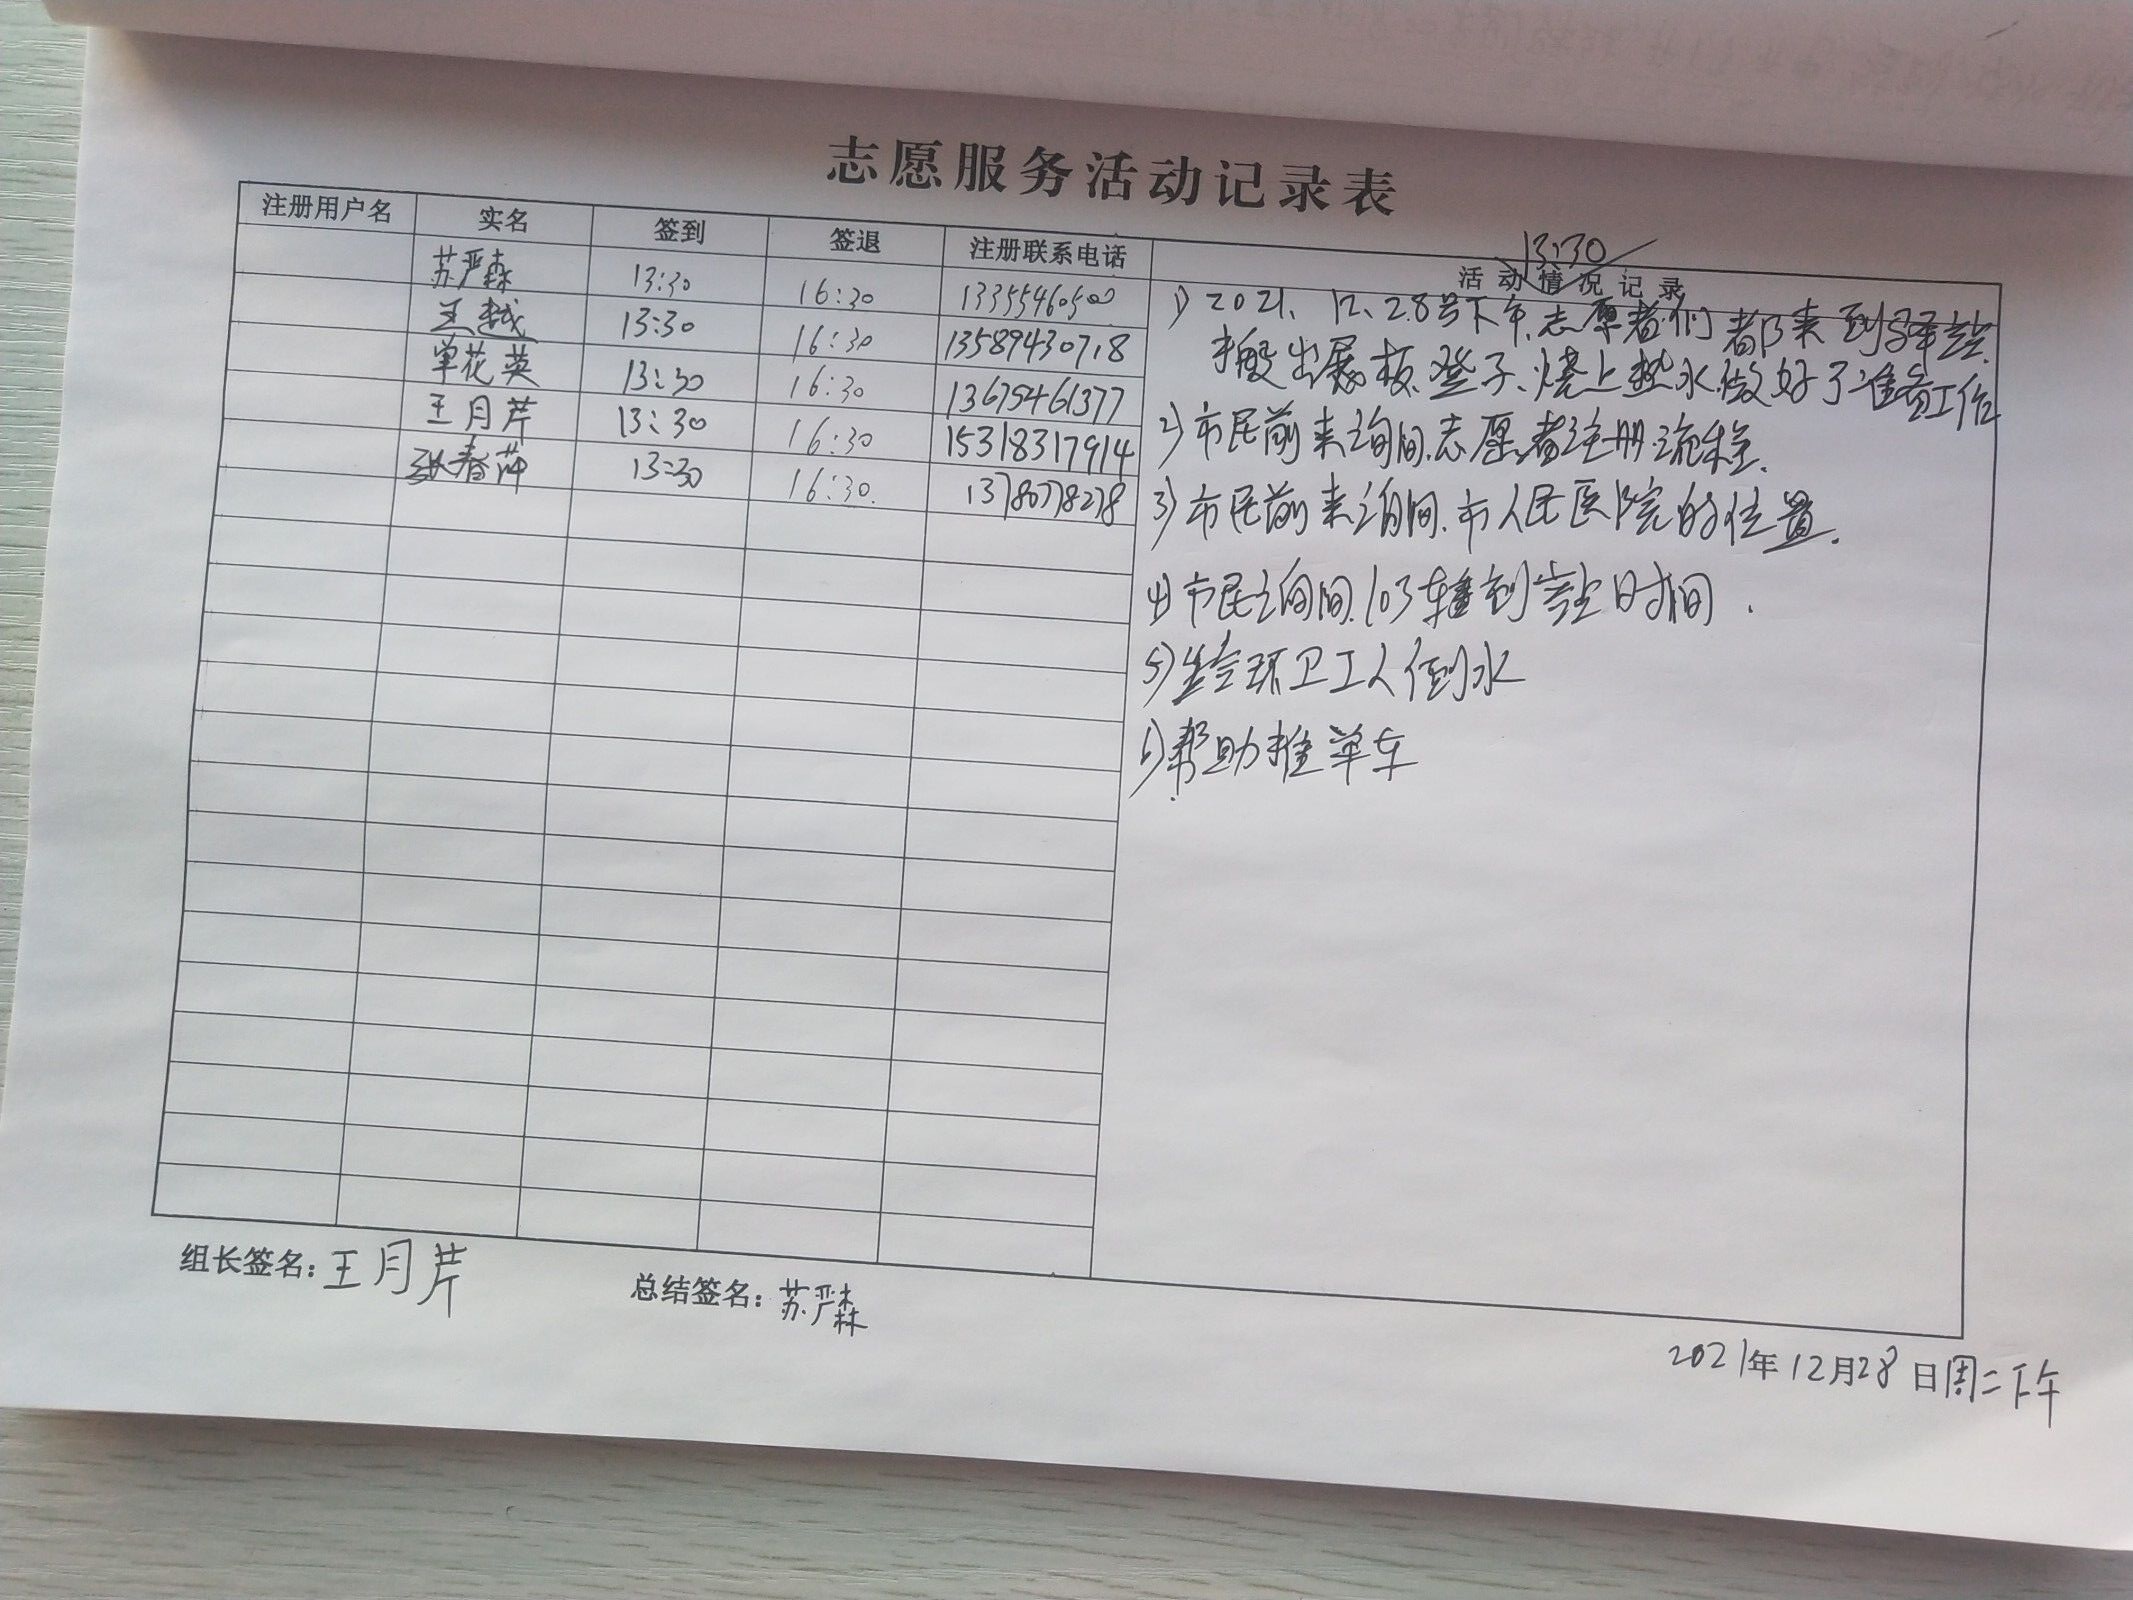 志愿服务活动记录表
注册用户名 实名 签到 签退 注册联系电话 活动情况记录
13:30
苏严森 13:30 16:30 13355460500
王越 13:30 16:30 13589430718
单花英 13:30 16:30 13679461377
王月芹 13:30 16:30 15318317914
张春萍 13:30 16:30. 13780778278
1) 2021、12、28号下午.志愿者们都来到驿站.
搬出展板、凳子、烧上热水做好了准备工作
2) 市民前来询问.志愿者注册流程.
3) 市民前来询问.市人民医院的位置.
4) 市民询问.103路到站时间.
5) 给环卫工人倒水
6) 帮助推单车
组长签名：王月芹 总结签名：苏严森
2021年12月28日周二下午